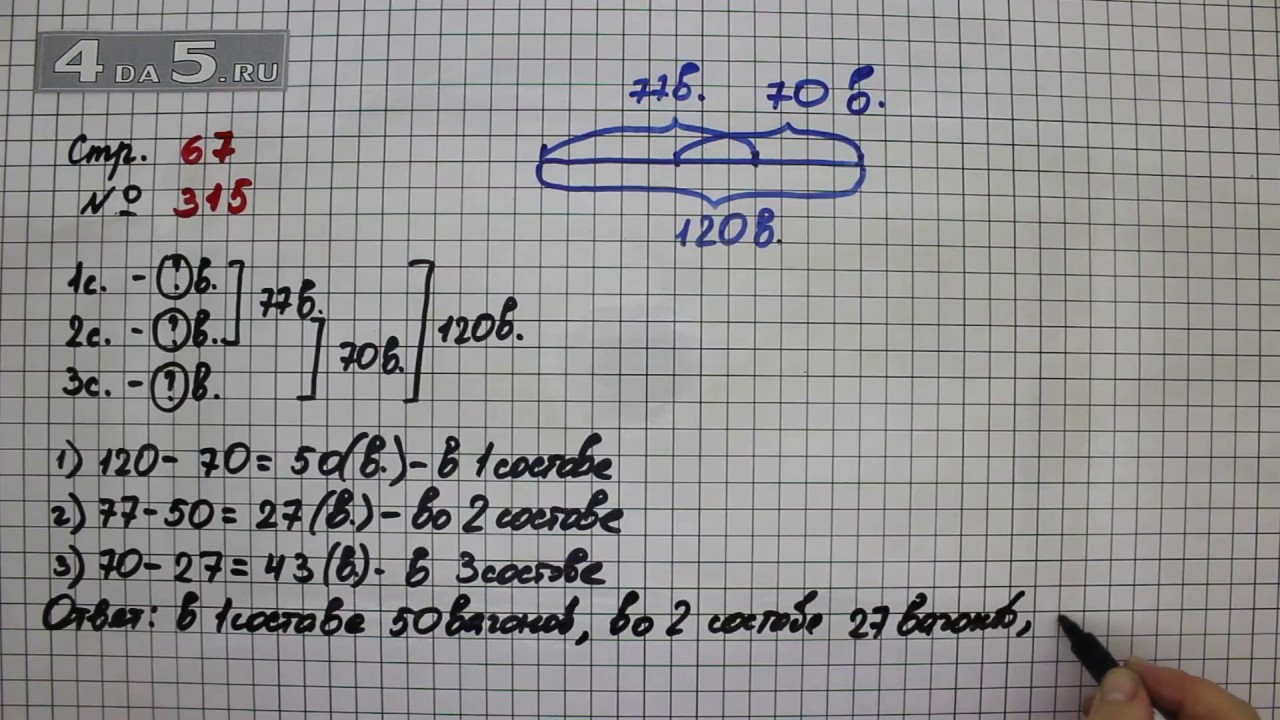 4DA5.RU
77в. 70 в.
120в.
Стр. 67
№ 315
1с. - ?в.
2с. - ?в.
3с. - ?в.
77в.
70в.
120в.
1) 120 - 70 = 50(в.) - в 1 составе
2) 77 - 50 = 27 (в.) - во 2 составе
3) 70 - 27 = 43 (в.) - в 3 составе
Ответ: в 1 составе 50 вагонов, во 2 составе 27 вагонов,